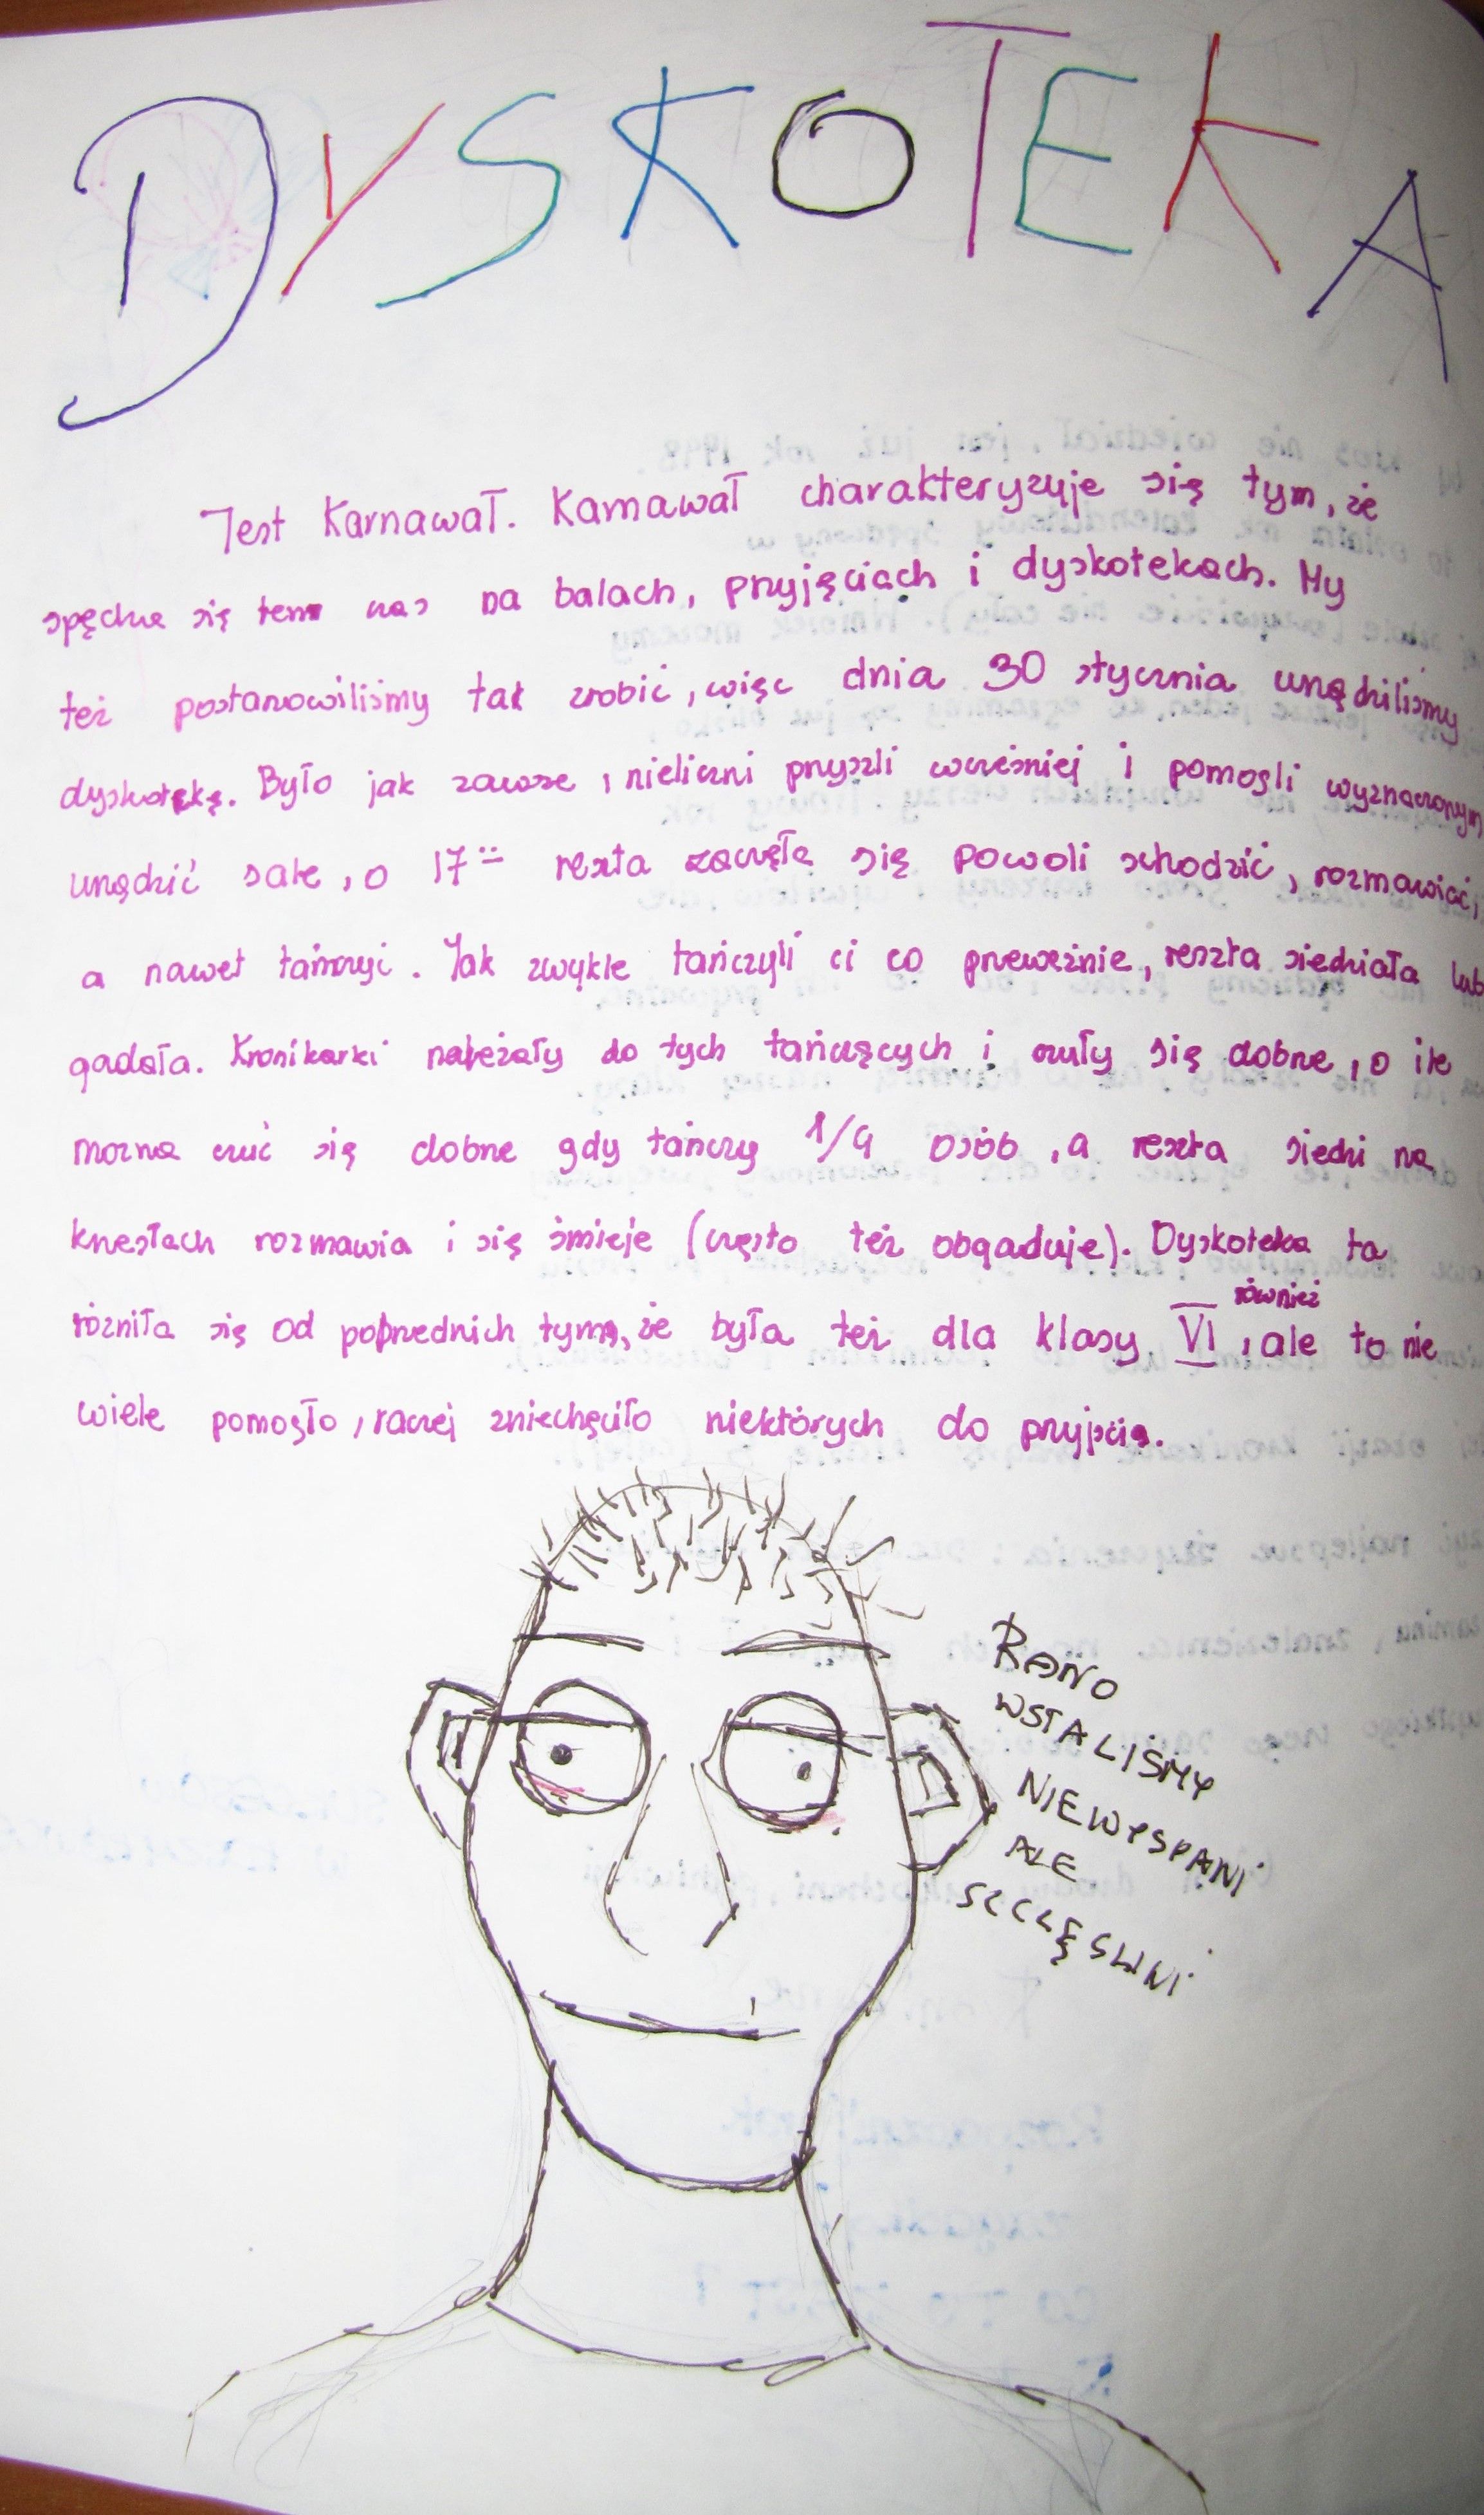 DYSKOTEKA
Jest Karnawał. Karnawał charakteryzuje się tym, że
spędza się ten czas na balach, przyjęciach i dyskotekach. My
też postanowiliśmy tak zrobić, więc dnia 30 stycznia urządziliśmy
dyskotekę. Było jak zawsze, nieliczni przyszli wcześniej i pomogli wyznaczonym
urządzić salę, o 17⁰⁰ reszta zaczęła się powoli schodzić, rozmawiać,
a nawet tańczyć. Jak zwykle tańczyli ci co przeważnie, reszta siedziała lub
gadała. Kronikarki należały do tych tańczących i czuły się dobrze, o ile
można czuć się dobrze gdy tańczy 1/4 osób, a reszta siedzi na
krzesłach rozmawia i się śmieje (często też obgaduje). Dyskoteka ta
różniła się od poprzednich tym, że była też dla klasy VI, ale to również nie
wiele pomogło, raczej zniechęciło niektórych do przyjścia.
RANO
WSTALIŚMY
NIEWYSPANI
ALE
SZCZĘŚLIWI